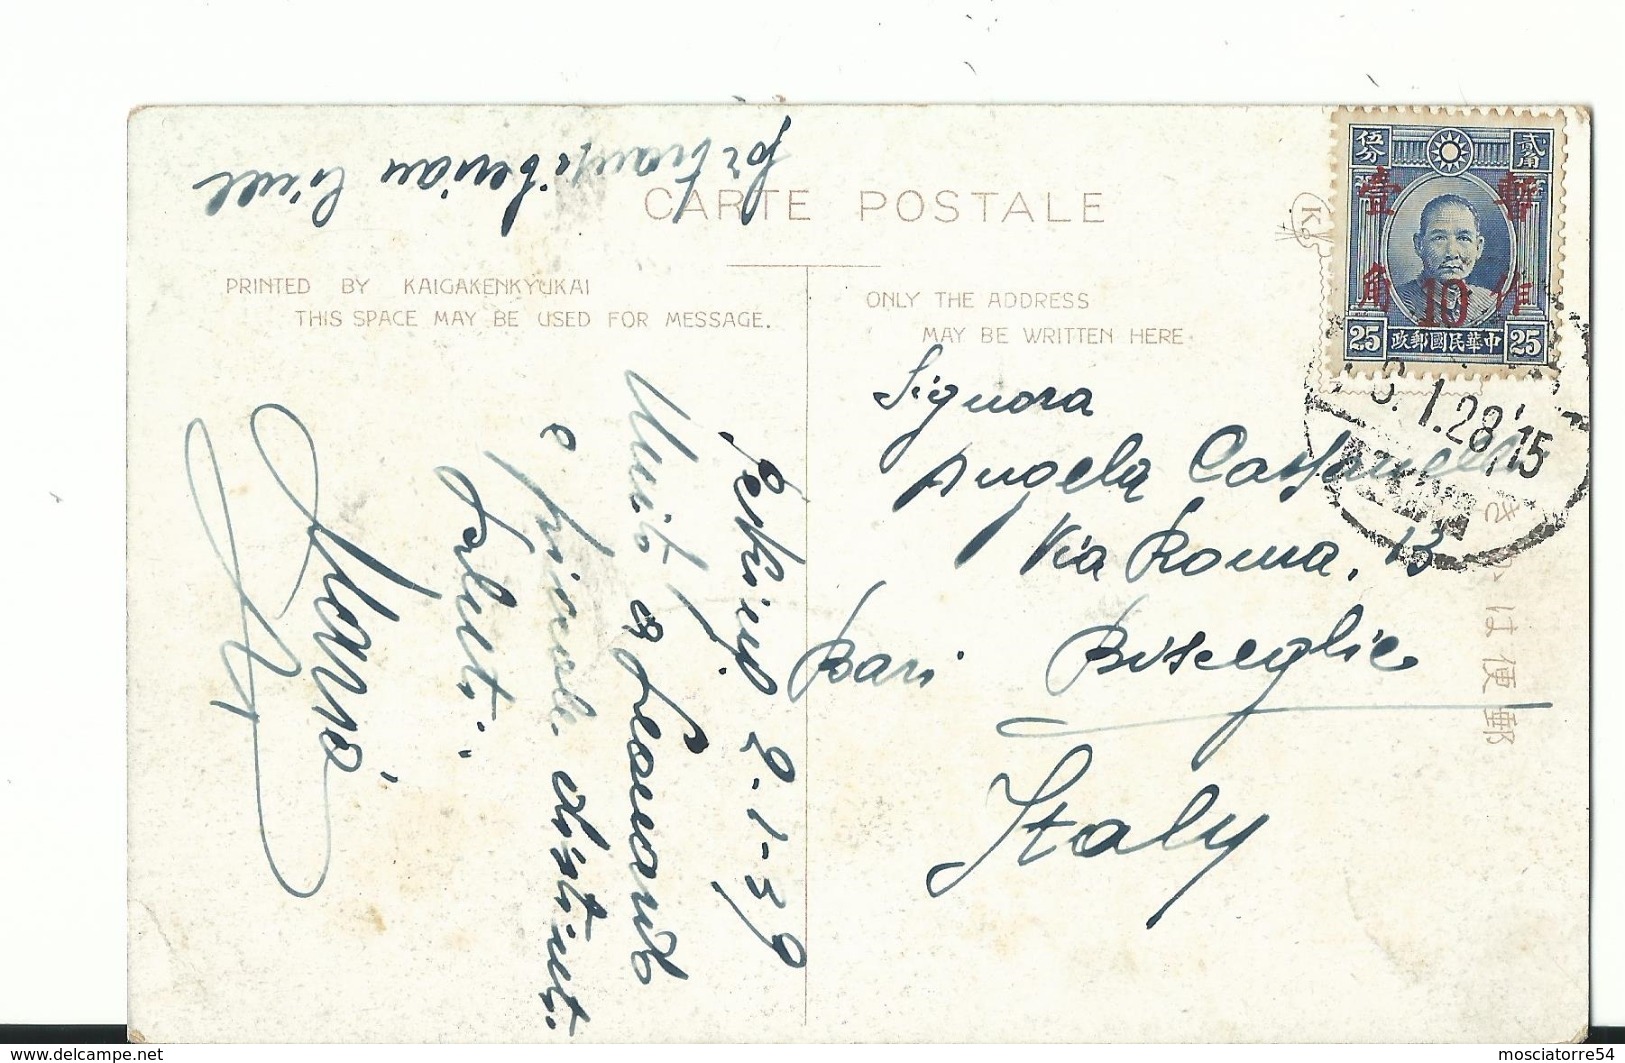 pr transiberian line
CARTE POSTALE
PRINTED BY KAIGAKENKYUKAI
THIS SPACE MAY BE USED FOR MESSAGE.
ONLY THE ADDRESS
MAY BE WRITTEN HERE.
K
伍分 貳角
暫作 壹角
10
25 政郵國民華中 25
8.1.28.15
Peking 2-1-39
Unito a
e piccole distinti
saluti.
Mario
Signora
Angela
Via Roma. 13
Bari Bisceglie
Italy
郵便はかき
www.delcampe.net
mosciatorre54